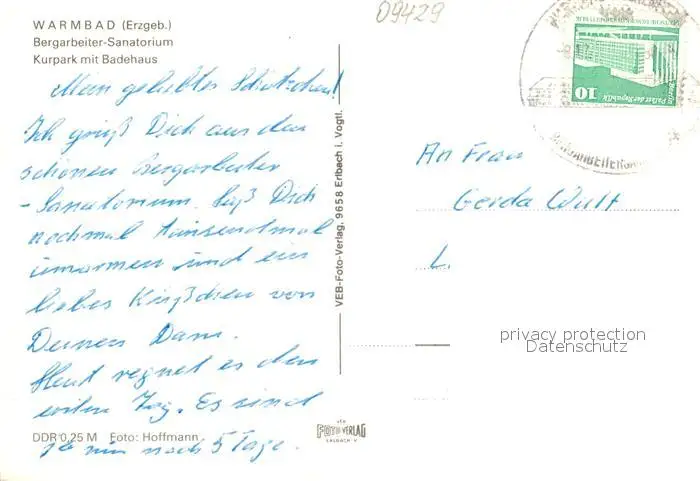 09429
WARMBAD (Erzgeb.)
Bergarbeiter-Sanatorium
Kurpark mit Badehaus
Mein geliebtes Schätzchen!
Ich grüß Dich aus den
schönen Bergarbeiter
-Sanatorium. Laß Dich
nochmal tausendmal
umarmen und ein
liebes Küßchen von
Deinem
Heut regnet es den
ersten Tag. Es sind
ja nur noch 5 Tage.
DDR 0,25 M Foto: Hoffmann
VEB-Foto-Verlag, 9658 Erlbach i. Vogtl.
VEB
FOTO-VERLAG
ERLBACH V.
10
Palast der Republik
An Frau
Gerda Wulf
L.
privacy protection
Datenschutz